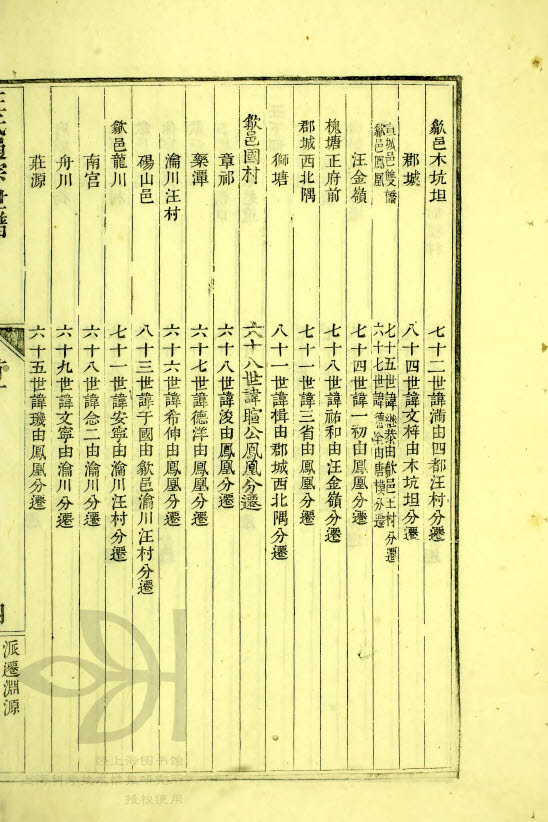 歙邑木坑坦 七十二世諱滿由四都汪村分遷
郡城 八十四世諱文梓由木坑坦分遷
宣城邑雙橋 七十五世諱繼恭由歙邑王村分遷
歙邑鳳凰 六十七世諱德由唐模分遷
汪金嶺 七十四世諱一初由鳳凰分遷
槐塘正府前 七十八世諱祐和由汪金嶺分遷
郡城西北隅 七十一世諱三省由鳳凰分遷
獅塘 八十一世諱楫由郡城西北隅分遷
歙邑國村 六十八世諱暄公鳳凰分遷
章祁 六十八世諱浚由鳳凰分遷
藥潭 六十七世諱德洋由鳳凰分遷
瀹川汪村 六十六世諱希伸由鳳凰分遷
碭山邑 八十三世諱于國由歙邑瀹川汪村分遷
歙邑龍川 七十一世諱安寧由瀹川汪村分遷
南宮 六十八世諱念二由瀹川分遷
舟川 六十九世諱文寧由瀹川分遷
莊源 六十五世諱璣由鳳凰分遷
汪氏通宗世譜
派遷淵源
上海图书馆
授权使用